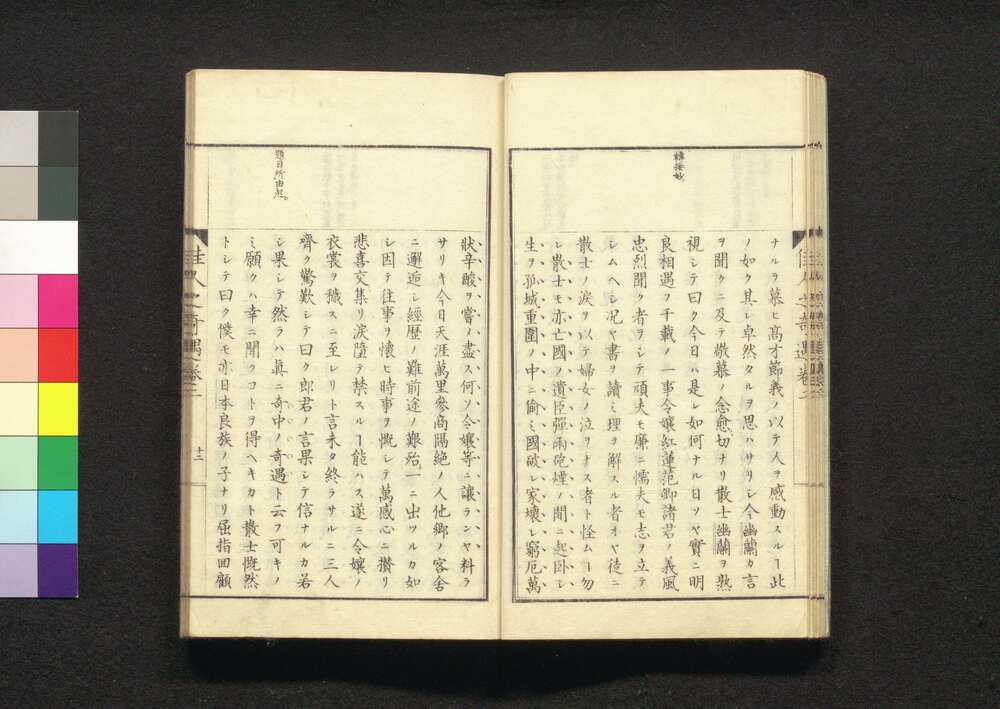 ナルヲ慕ヒ高才節義ノ以テ人ヲ感動スルヿ此
ノ如ク其レ卓然タルヲ思ハサリシ今幽蘭カ言
ヲ聞クニ及テ敬慕ノ念愈切ナリ散士幽蘭ヲ熟
視シテ曰ク今日ハ是レ如何ナル日ソヤ實ニ明
良相遇フ千載ノ一事令孃紅蓮范卿諸君ノ義風
忠烈聞ク者ヲシテ頑夫モ廉ニ懦夫モ志ヲ立テ
シムヘシ况ヤ書ヲ讀ミ理ヲ解スル者オヤ徒ニ
散士ノ涙ヲ以テ婦女ノ泣ヲナス者ト怪ムヿ勿
レ散士モ亦亡國ノ遺臣彈雨砲煙ノ間ニ起臥シ
生ヲ孤城重圍ノ中ニ偷ミ國破レ家壞レ窮厄萬
狀辛酸ヲ嘗メ盡ス何ソ令孃等ニ讓ランヤ料ラ
サリキ今日天涯萬里參商隔絶ノ人他鄉ノ客舍
ニ邂逅シ經歴ノ難前途ノ艱殆一ニ出ツルカ如
シ因テ往事ヲ懷ヒ時事ヲ慨シテ萬感心ニ攢リ
悲喜交集リ涙墮テ禁スルヿ能ハス遂ニ令孃ノ
衣裳ヲ穢スニ至レリト言未タ終ラサルニ三人
齊ク驚歎シテ曰ク郎君ノ言果シテ信ナルカ若
シ果シテ然ラハ眞ニ奇中ノ奇遇ト云フ可キノ
ミ願クハ幸ニ聞クコトヲ得ヘキカト散士慨然
トシテ曰ク僕モ亦日本良族ノ子ナリ屈指回顧
題目所由起。
佳人之奇遇卷二
十二